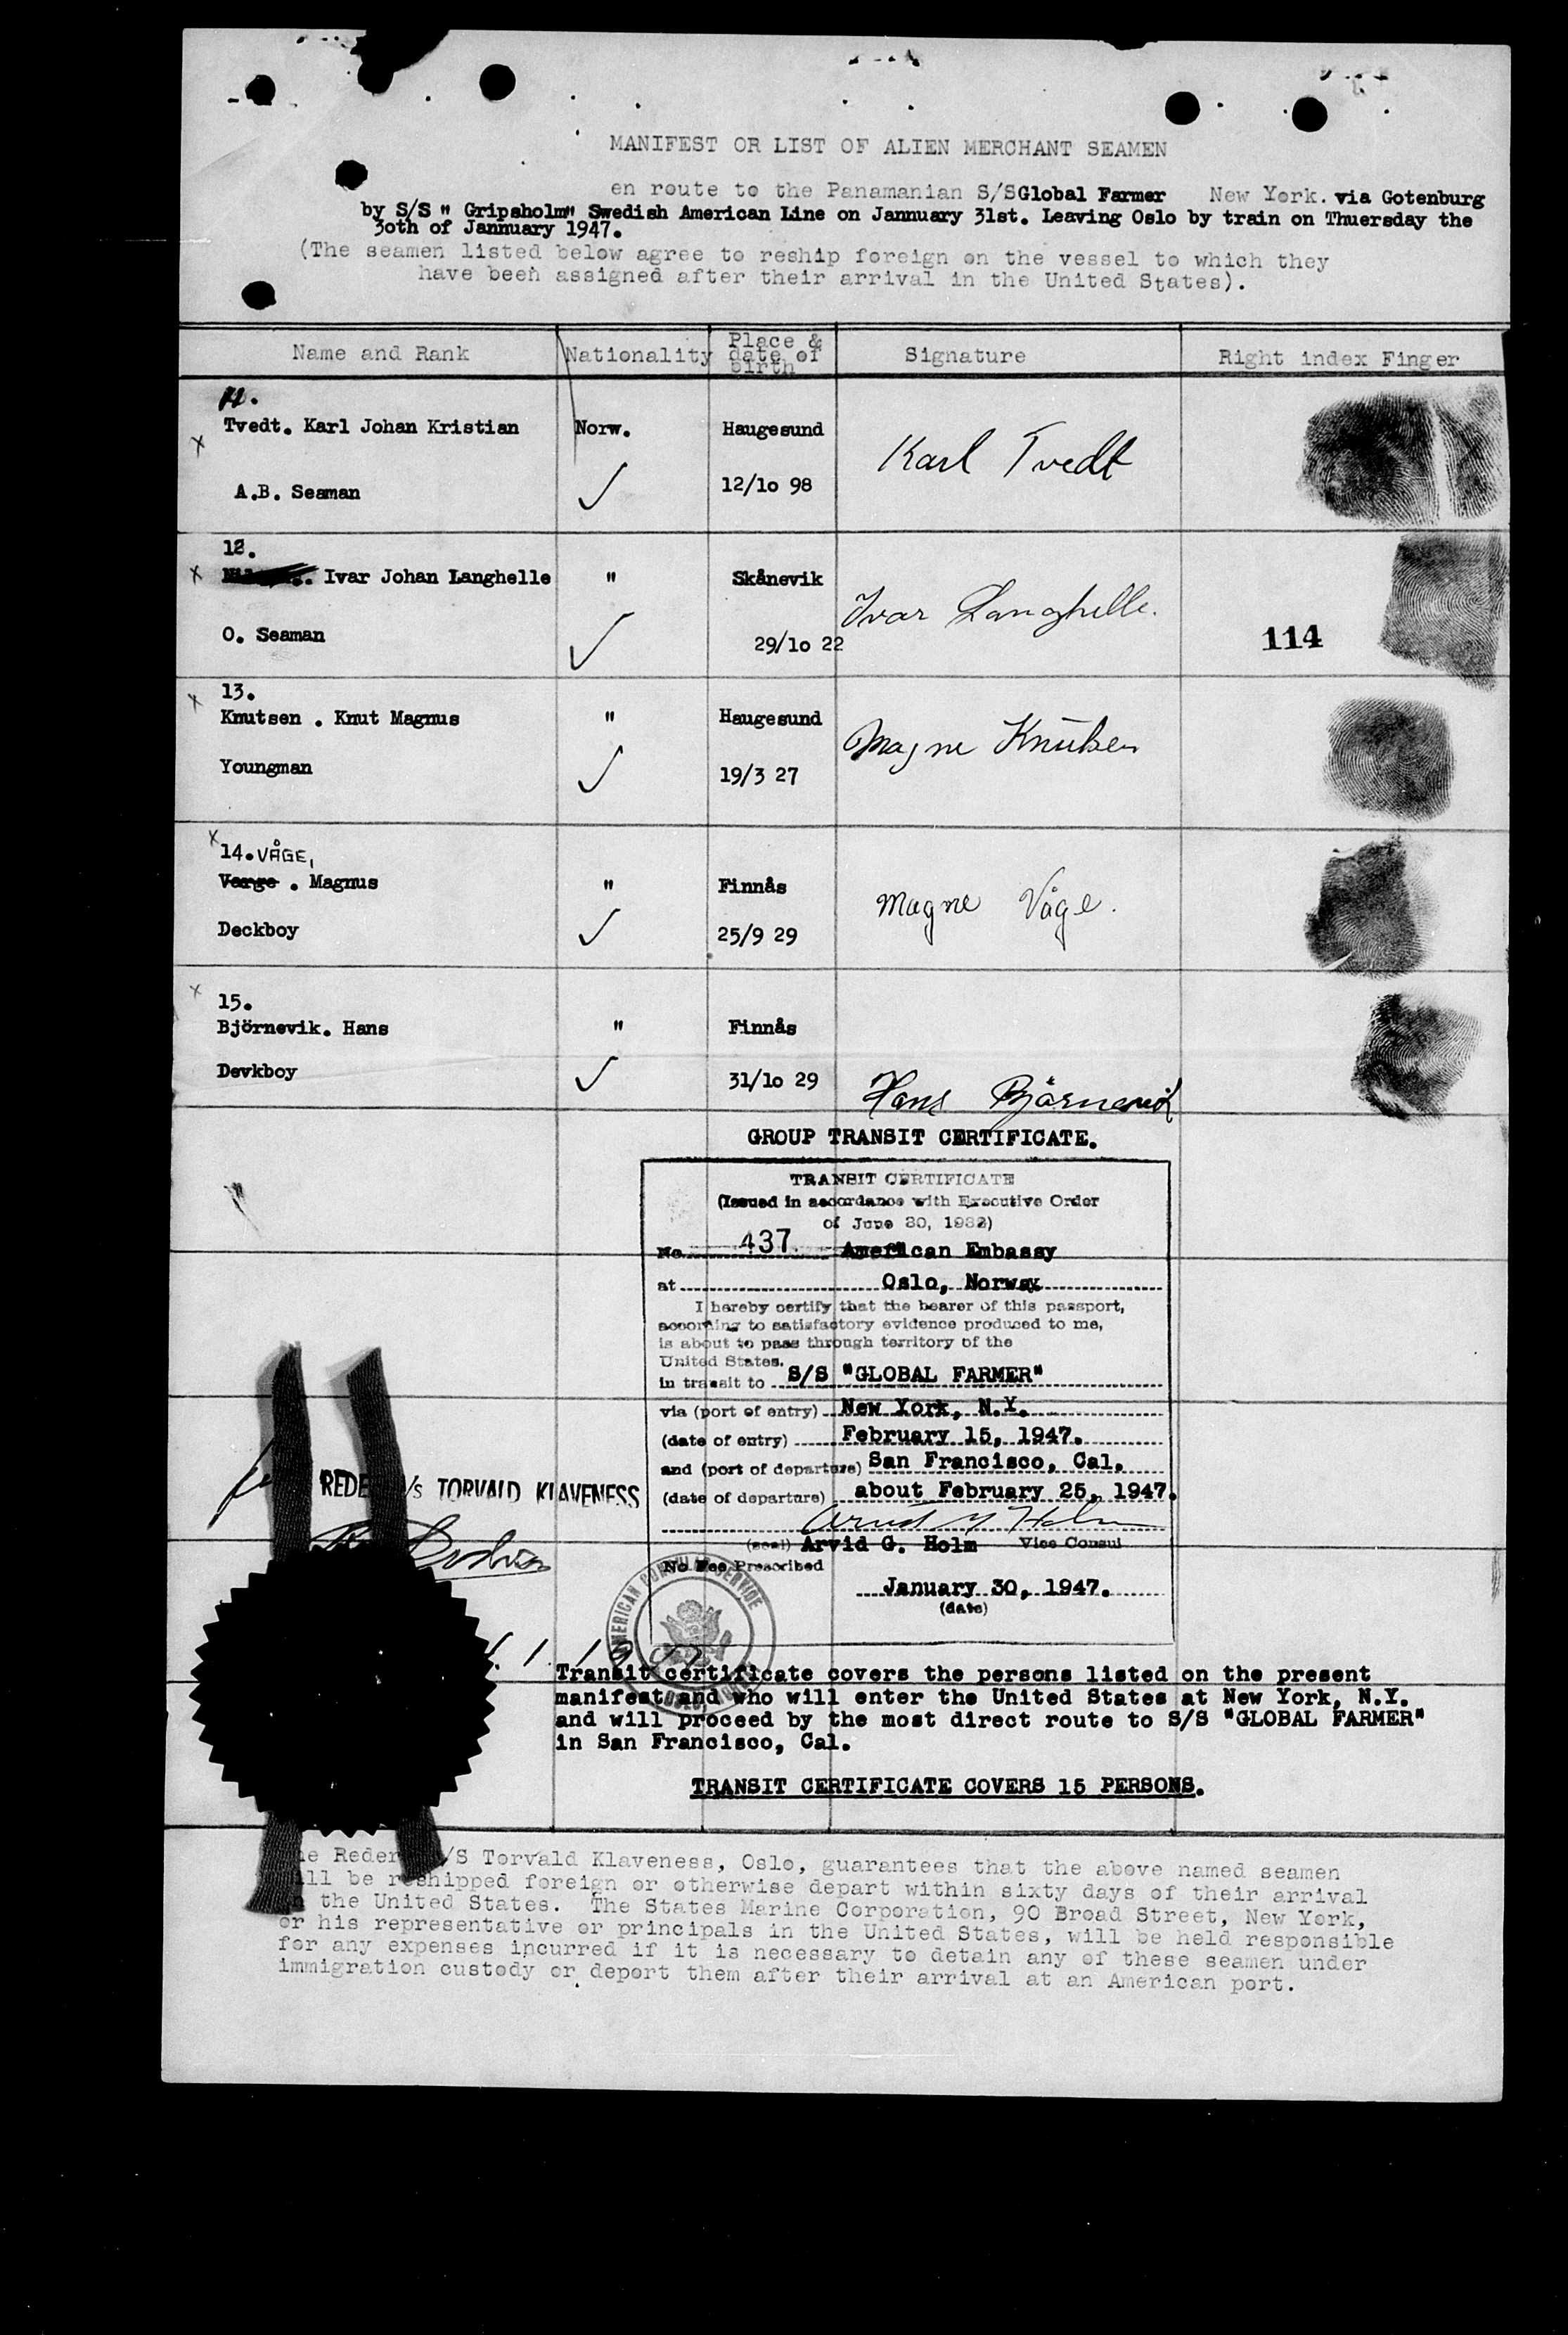 MANIFEST OR LIST OF ALIEN MERCHANT SEAMEN
en route to the Panamanian S/SGlobal Farmer New York. via Gotenburg
by S/S " Gripsholm" Swedish American Line on Jannuary 31st. Leaving Oslo by train on Thuersday the
3oth of Jannuary 1947.
(The seamen listed below agree to reship foreign on the vessel to which they
have been assigned after their arrival in the United States).
Name and Rank Nationality Place & date of birth Signature Right index Finger
11.
Tvedt. Karl Johan Kristian Norw. Haugesund Karl Tvedt
x
A.B. Seaman 12/1o 98
12.
x Ivar Johan Langhelle " Skånevik Ivar Langhelle.
O. Seaman 29/1o 22 114
13.
x Knutsen . Knut Magnus " Haugesund Magne Knutsen
Youngman 19/3 27
x 14. VÅGE,
Varge . Magnus " Finnås Magne Våge.
Deckboy 25/9 29
x 15.
Björnevik. Hans " Finnås
Devkboy 31/1o 29 Hans Björnevik
GROUP TRANSIT CERTIFICATE.
TRANSIT CERTIFICATE
(Issued in accordance with Executive Order
of June 30, 1932)
No. 437. American Embassy
at Oslo, Norway
I hereby certify that the bearer of this passport,
according to satisfactory evidence produced to me,
is about to pass through territory of the
United States.
in transit to S/S "GLOBAL FARMER"
via (port of entry) New York, N.Y.
(date of entry) February 15, 1947.
and (port of departure) San Francisco, Cal.
(date of departure) about February 25, 1947.
REDE /S TORVALD KLAVENESS
Arvid G Holm
(seal) Arvid G. Holm Vice Consul
No Fee Prescribed
January 30, 1947.
(date)
AMERICAN CONSULAR SERVICE
OSLO, NORWAY
Transit certificate covers the persons listed on the present
manifest and who will enter the United States at New York, N.Y.
and will proceed by the most direct route to S/S "GLOBAL FARMER"
in San Francisco, Cal.
TRANSIT CERTIFICATE COVERS 15 PERSONS.
e Reder /S Torvald Klaveness, Oslo, guarantees that the above named seamen
ill be reshipped foreign or otherwise depart within sixty days of their arrival
n the United States. The States Marine Corporation, 90 Broad Street, New York,
or his representative or principals in the United States, will be held responsible
for any expenses incurred if it is necessary to detain any of these seamen under
immigration custody or deport them after their arrival at an American port.